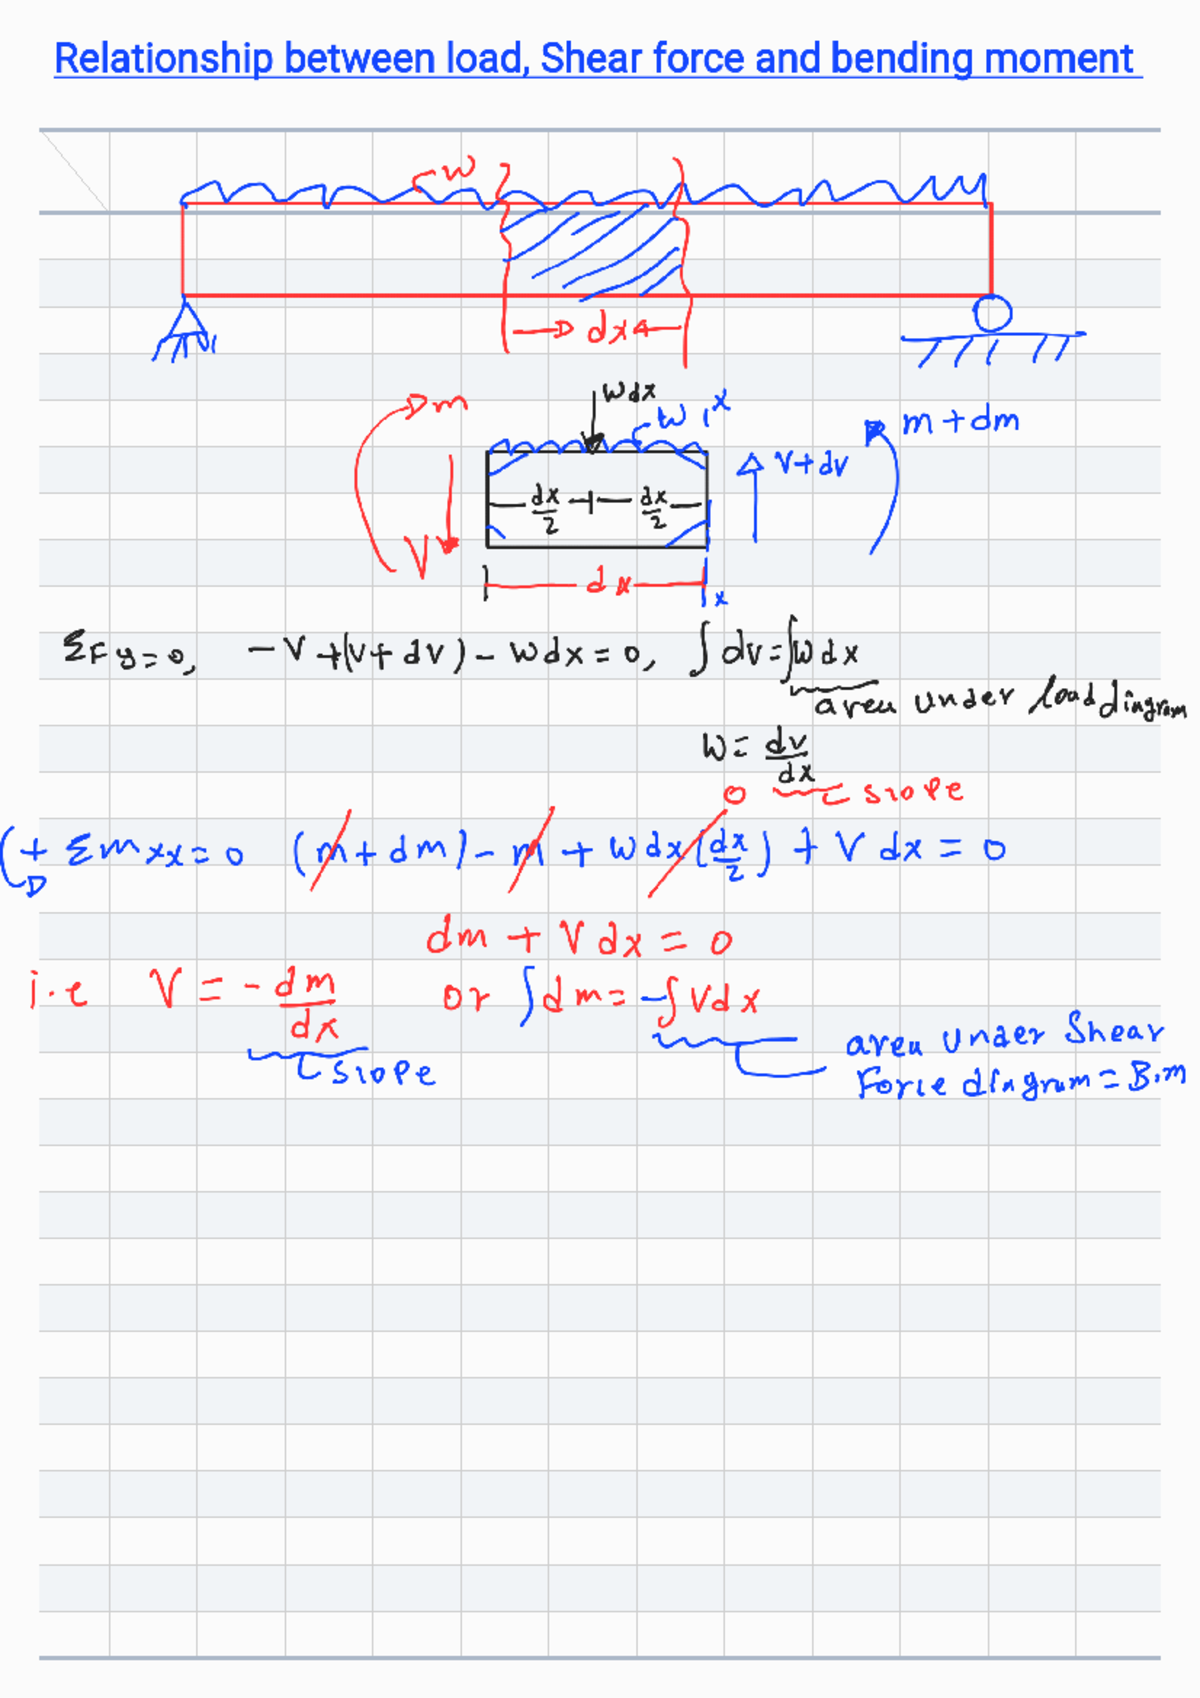 Relationship between load, Shear force and bending moment
w
dx
wdx
m
w
x
m + dm
V+dv
dx/2 dx/2
V
dx
x
ΣFy=0, -V+(v+dv)-wdx=0, ∫dv=∫wdx
area under load diagram
w = dv/dx
0 slope
+ Σmxx=0 (m+dm)-m+wdx(dx/2)+Vdx=0
dm + Vdx = 0
i.e V = -dm/dx or ∫dm=-∫Vdx
slope
area under Shear
Force diagram = B.m